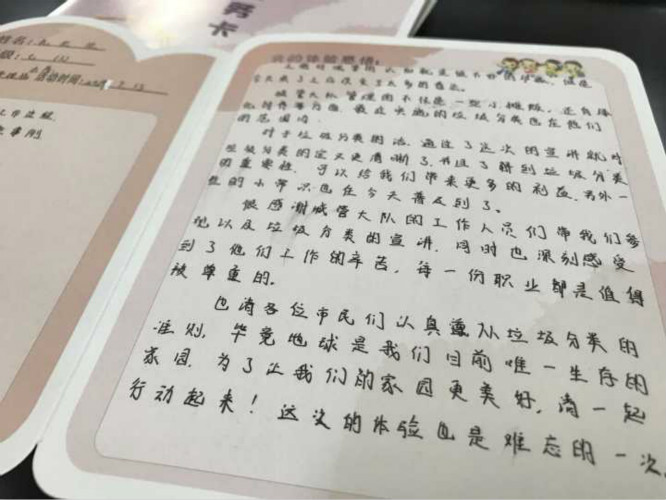 务卡
姓名:
活动时间:
我的体验感悟:
城管大队管理的不仅是一些小摊贩,还有绿
对于垃圾分类的话,通过了这次的宣讲就对
垃圾分类的定义更清晰了,并且了解到垃圾分类
的重要性,可以给我们带来更多的利益,另外一
些的小常识也在今天普及到了。
很感谢城管大队的工作人员们带我们参
观以及垃圾分类的宣讲,同时也深刻感受
到了他们工作的辛苦,每一份职业都是值得
被尊重的。
也请各位市民们认真遵从垃圾分类的
准则,毕竟地球是我们目前唯一生存的
家园,为了让我们的家园更美好,请一起
行动起来!这次的体验也是难忘的一次